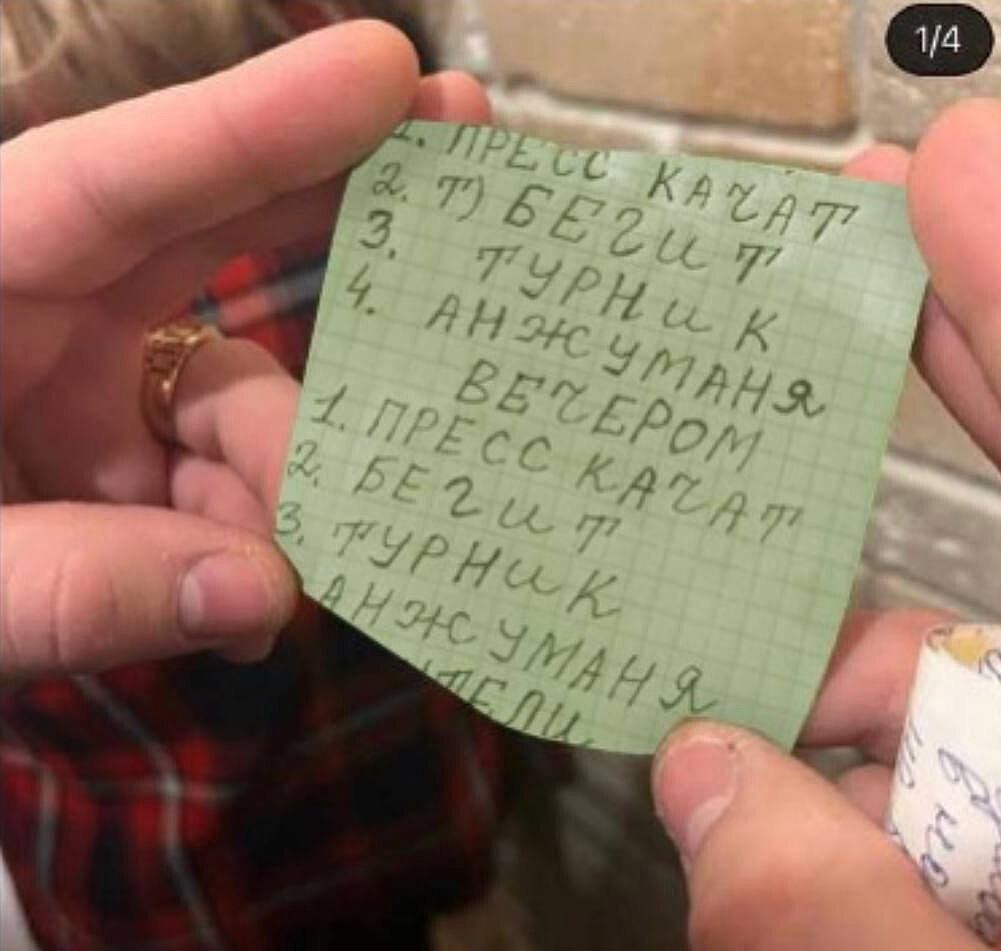 1/4
1. ПРЕСС КАЧАТ
2. Т) БЕГИТ
3. ТУРНИК
4. АНЖУМАНЯ
ВЕЧЕРОМ
1. ПРЕСС КАЧАТ
2. БЕГИТ
3. ТУРНИК
АНЖУМАНЯ